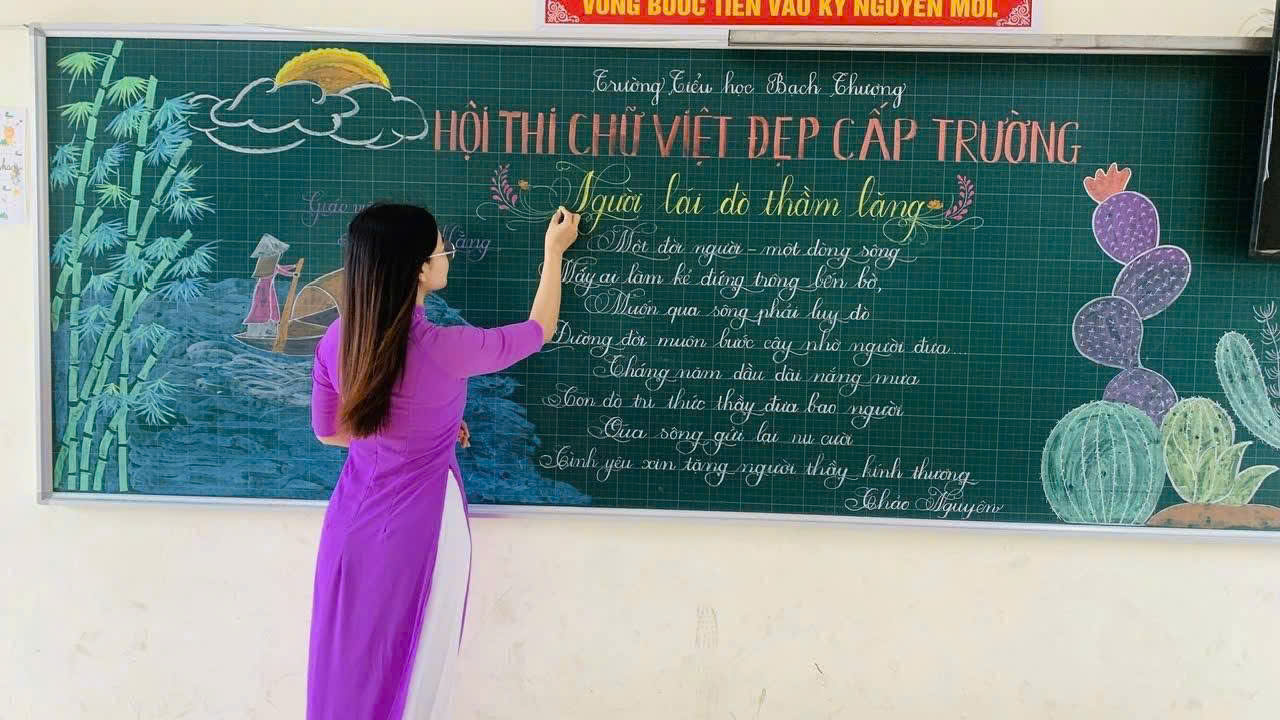 VỮNG BƯỚC TIẾN VÀO KỶ NGUYÊN MỚI.
Trường Tiểu học Bạch Thượng
HỘI THI CHỮ VIỆT ĐẸP CẤP TRƯỜNG
Người lái đò thầm lặng
Giáo
Hằng
Một đời người - một dòng sông
Mấy ai làm kẻ đứng trông bến bờ,
Muốn qua sông phải luỵ đò
Đường đời muôn bước cậy nhờ người đưa...
Tháng năm dầu dãi nắng mưa
Con đò tri thức thầy đưa bao người
Qua sông gửi lại nụ cười
Tình yêu xin tặng người thầy kính thương
Thảo Nguyên